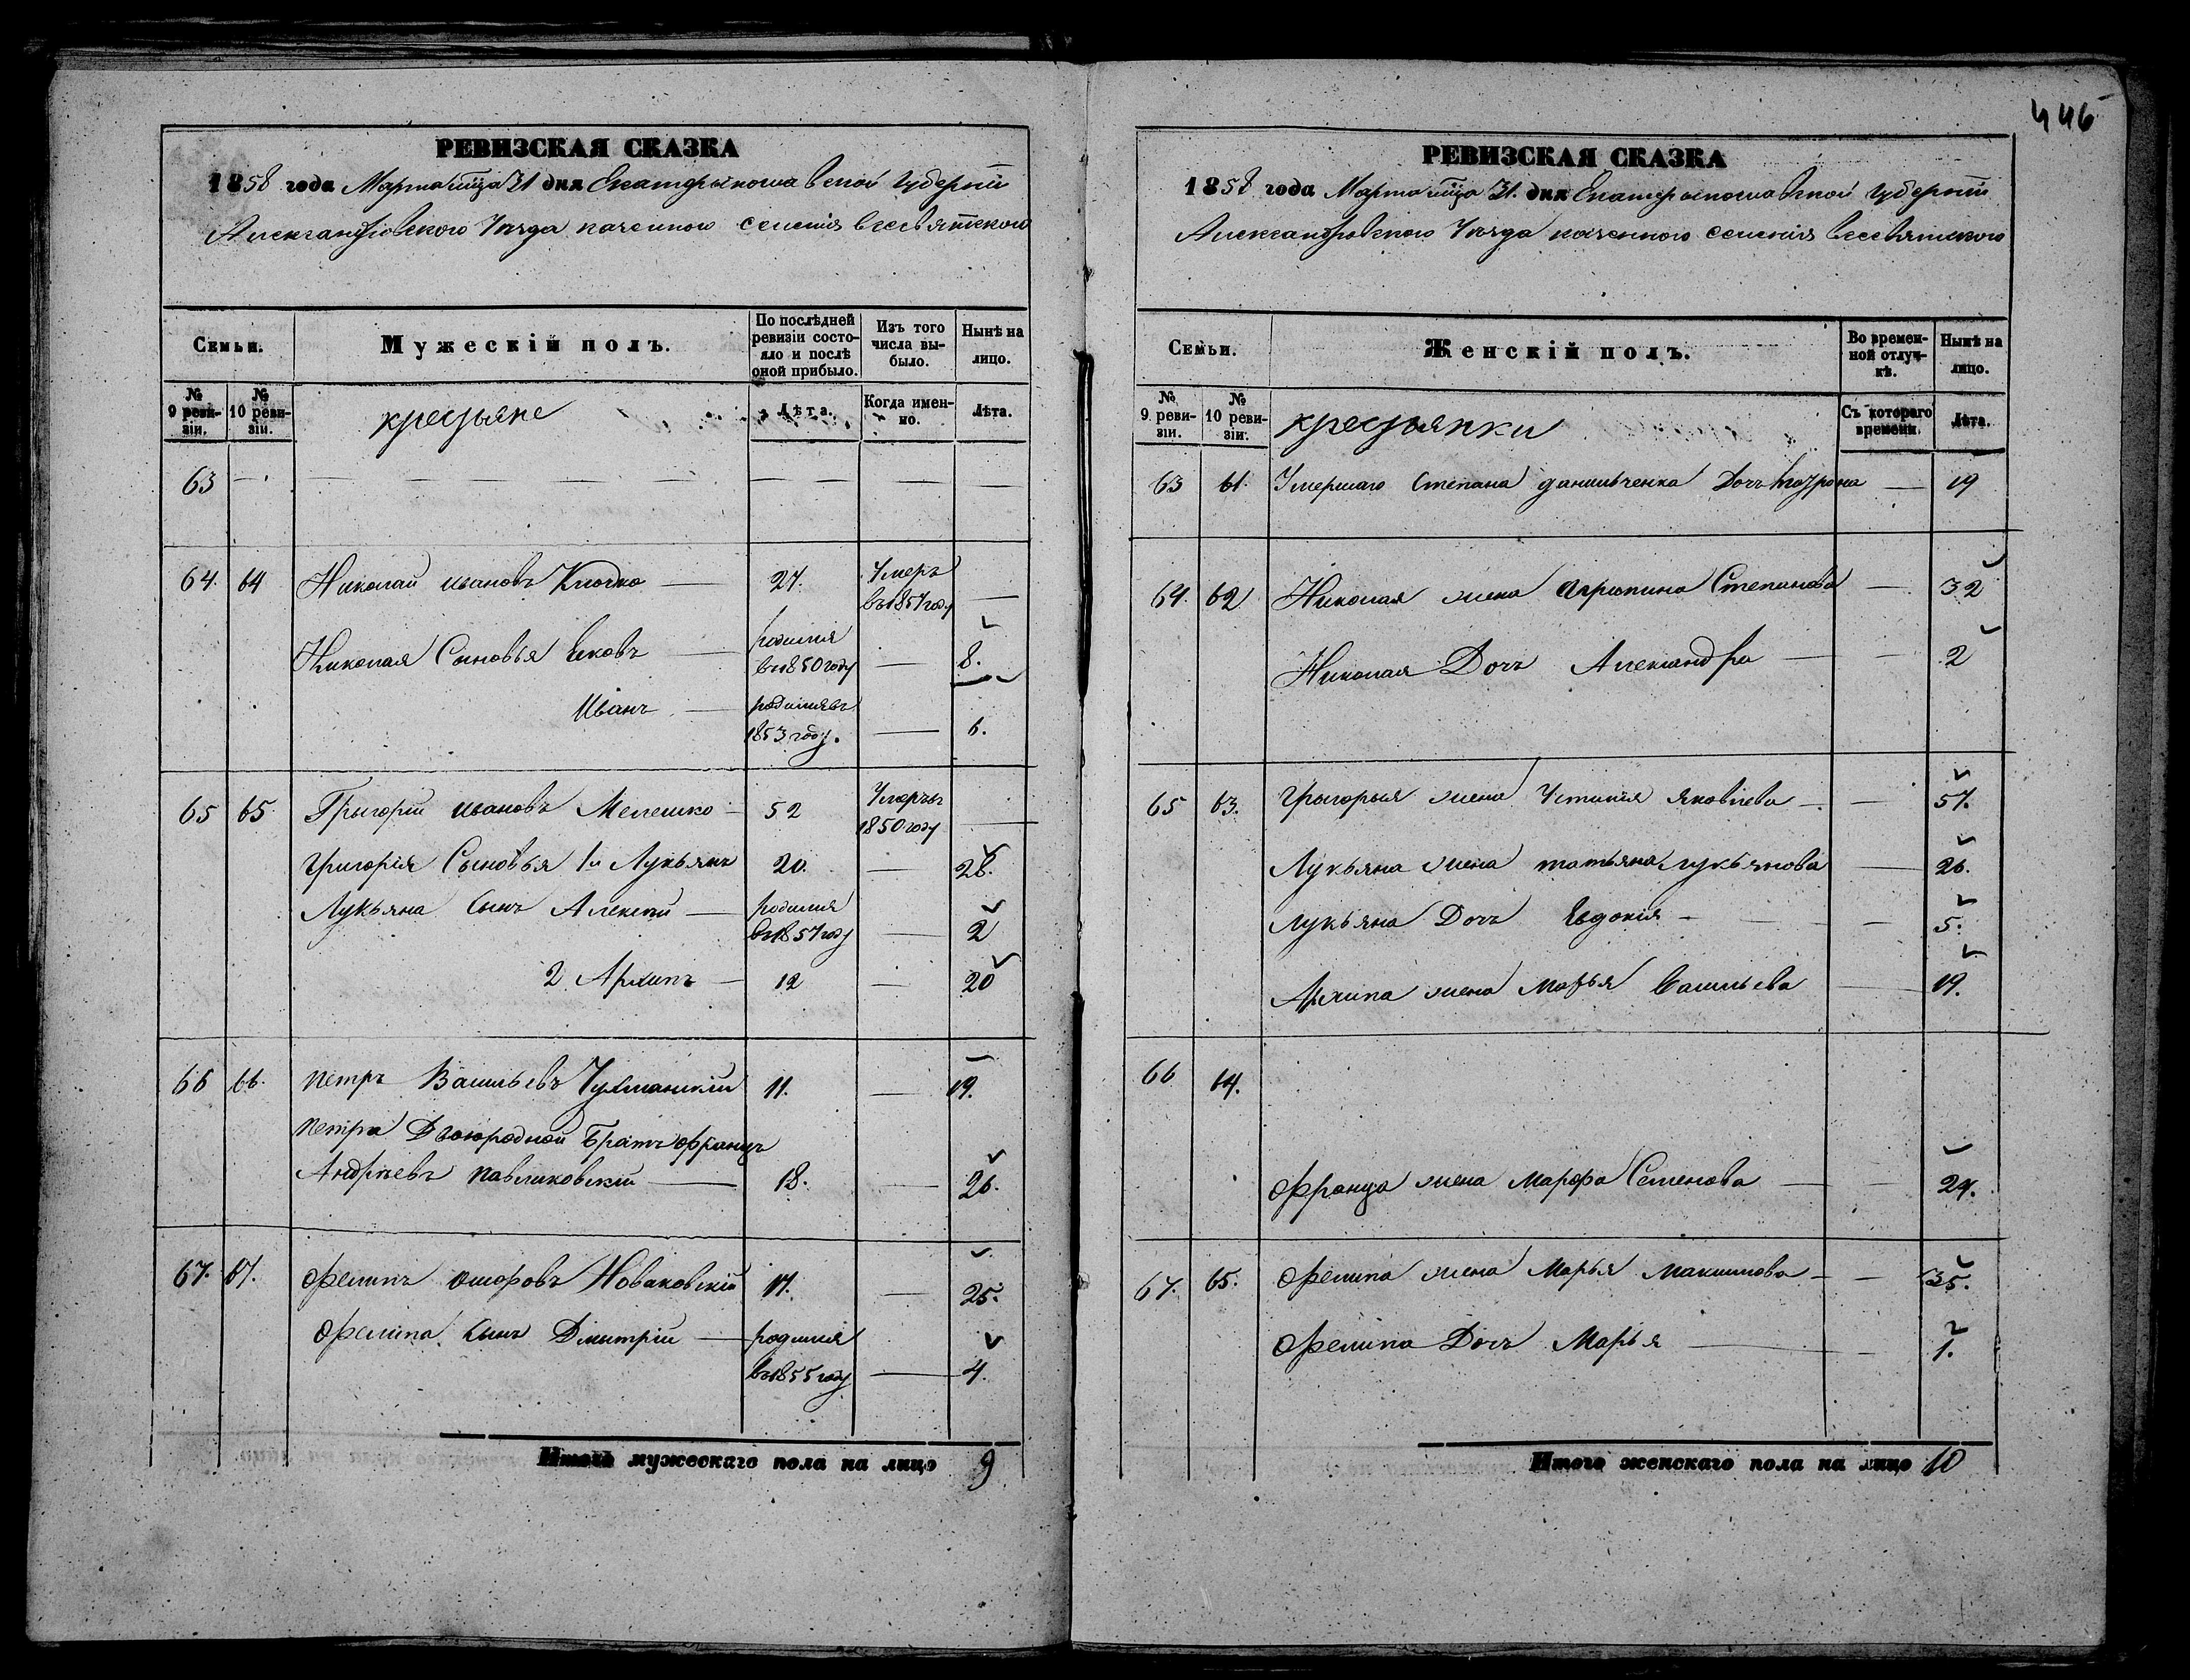 446
РЕВИЗСКАЯ СКАЗКА
1858 года Марта мца 31 дня Екатериносла вской Губерніи
Александровского Уезда казенного селенія всесвятского
Семьи.
Мужескій полъ.
По послѣдней ревизіи состо-
яло и послѣ
оной прибыло.
Изъ того
числа вы-
было.
Нынѣ на
лицо.
№
9 реви-
зіи.
№
10 реви-
зіи.
крестьяне
Лѣта.
Когда имен-
но.
Лѣта.
63 — — — — — — — —
64. 64 Николай ивановъ Клочко — 27. Умеръ
въ 1857 году —
Николая Сыновья Яковъ — родился
въ 1850 году — 8.
Иванъ — родился въ
1853 году. — 6.
65 65 Григорій ивановъ Мелешко — 52 Умеръ въ
1850 году —
Григорія Сыновья 1й Лукьянъ 20. — 28.
Лукьяна Сынъ Алексѣй — родился
въ 1857 году — 2
2 Архипъ — 12 — 20
66 66. петръ Васильевъ 11. — 19.
петра Двоюродной Братъ францъ
Андрѣевъ павликовскій — 18. — 26.
67. 67. филипъ Новаковскій 17. — 25.
филипа Сынъ Дмытрій — родился
въ 1855 году — 4.
Итого мужескаго пола на лицо 9
РЕВИЗСКАЯ СКАЗКА
1858 года Марта мца 31. дня Екатеринославской Губерніи
Александровского Уезда казенного селенія всесвятского
Семьи.
Женскій полъ.
Во времен-
ной отлуч-
кѣ.
Нынѣ на
лицо.
№
9. реви-
зіи.
№
10 реви-
зіи.
крестьянки
Съ котораго
времени.
Лѣта.
63 61. Умершаго Степана данильченка Дочь — 19
64. 62 Николая жена Степанова — 32
Николая Дочь Александра — — 2
65 63. Григорыя жена Устинія яковлева — — 57.
Лукьяна жена татьяна лукьянова — 26.
лукьяна Дочь Евдокія — — 5.
Архипа жена марья Васильева — 19.
66 64.
франца жена марфа Семенова — — 24.
67. 65. филипа жена Марья макимова — — 35.
филипа Дочь Марья — — 1.
Итого женскаго пола на лицо 10